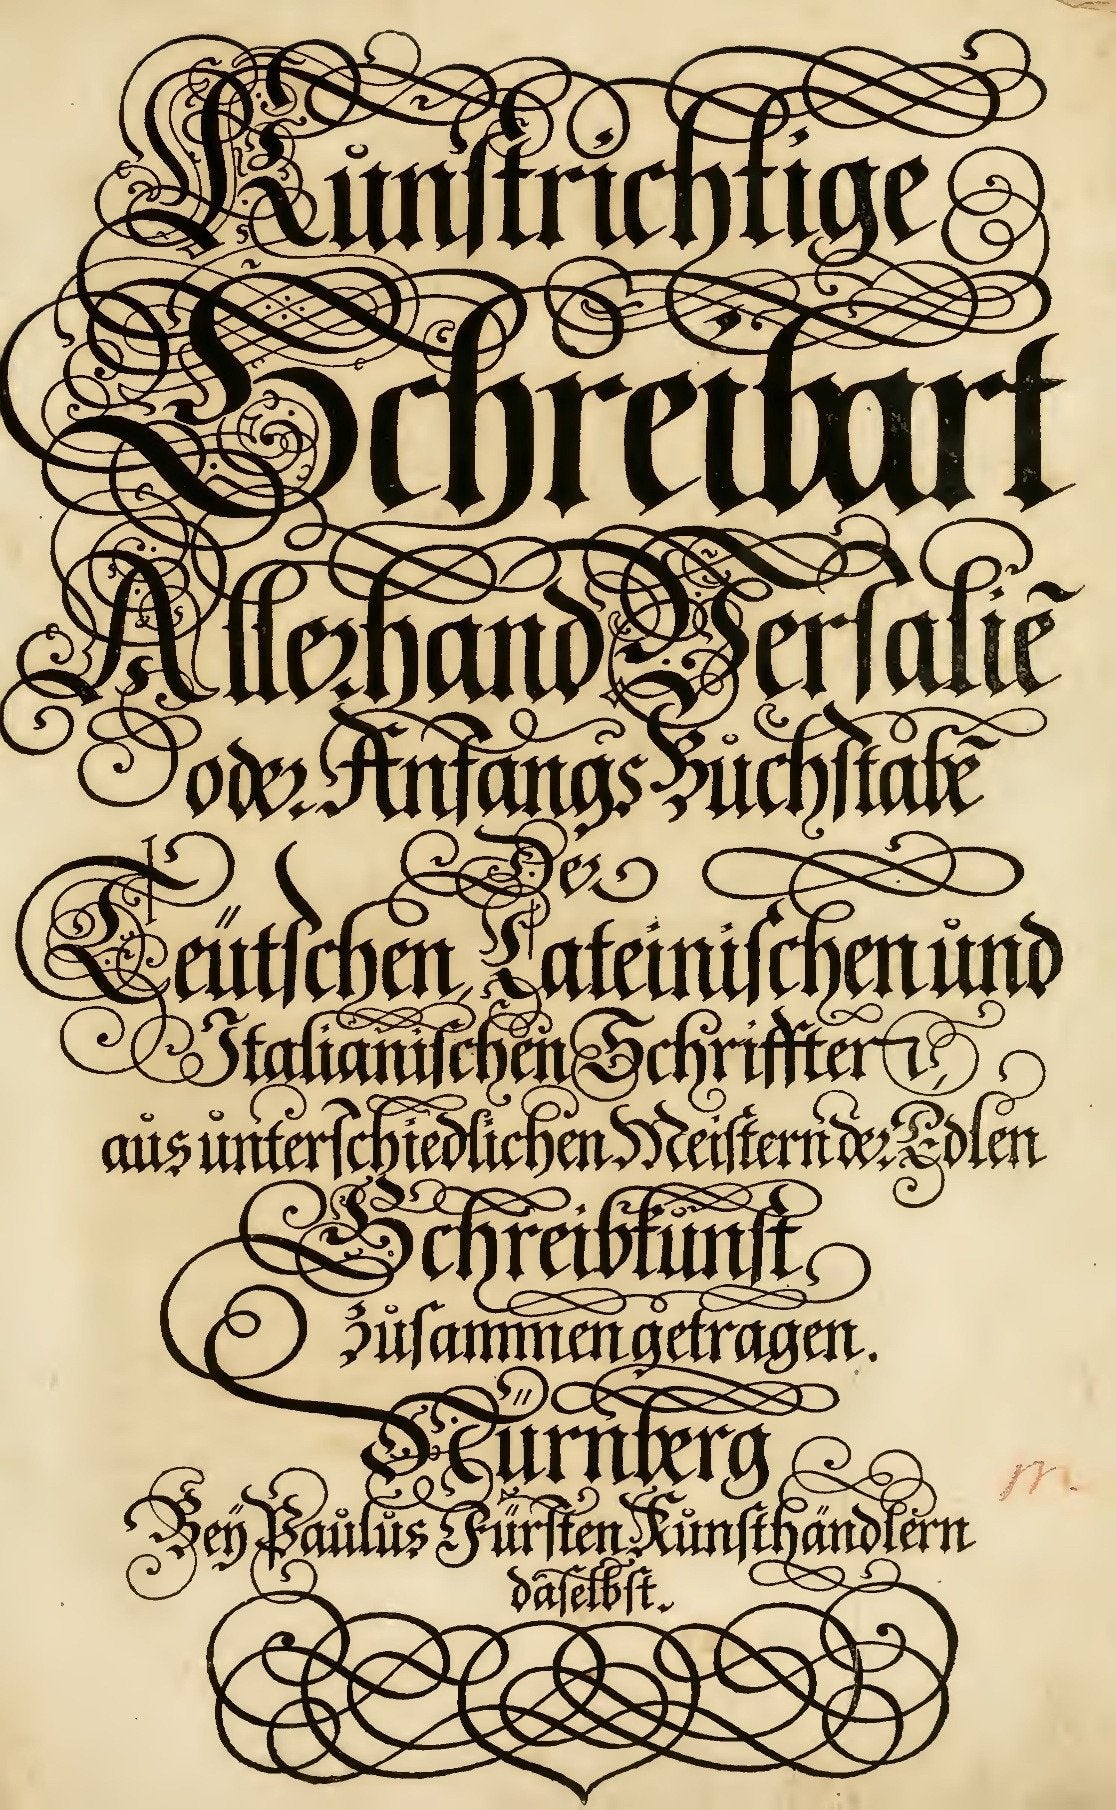 Kůnſtrichtige
Schreibart
Allerhand Verſaliē
oder Anfangs Bůchſtabē
Der
Teütſchen, Lateiniſchen ůnd
Italianiſchen Schrifften
aůs ůnterſchiedlichen Meiſtern der Edlen
Schreibkůnſt
zůſammen getragen.
Nürnberg
Beÿ Paůlůs Fürſten Kůnſthändlern
daſelbſt.
m.